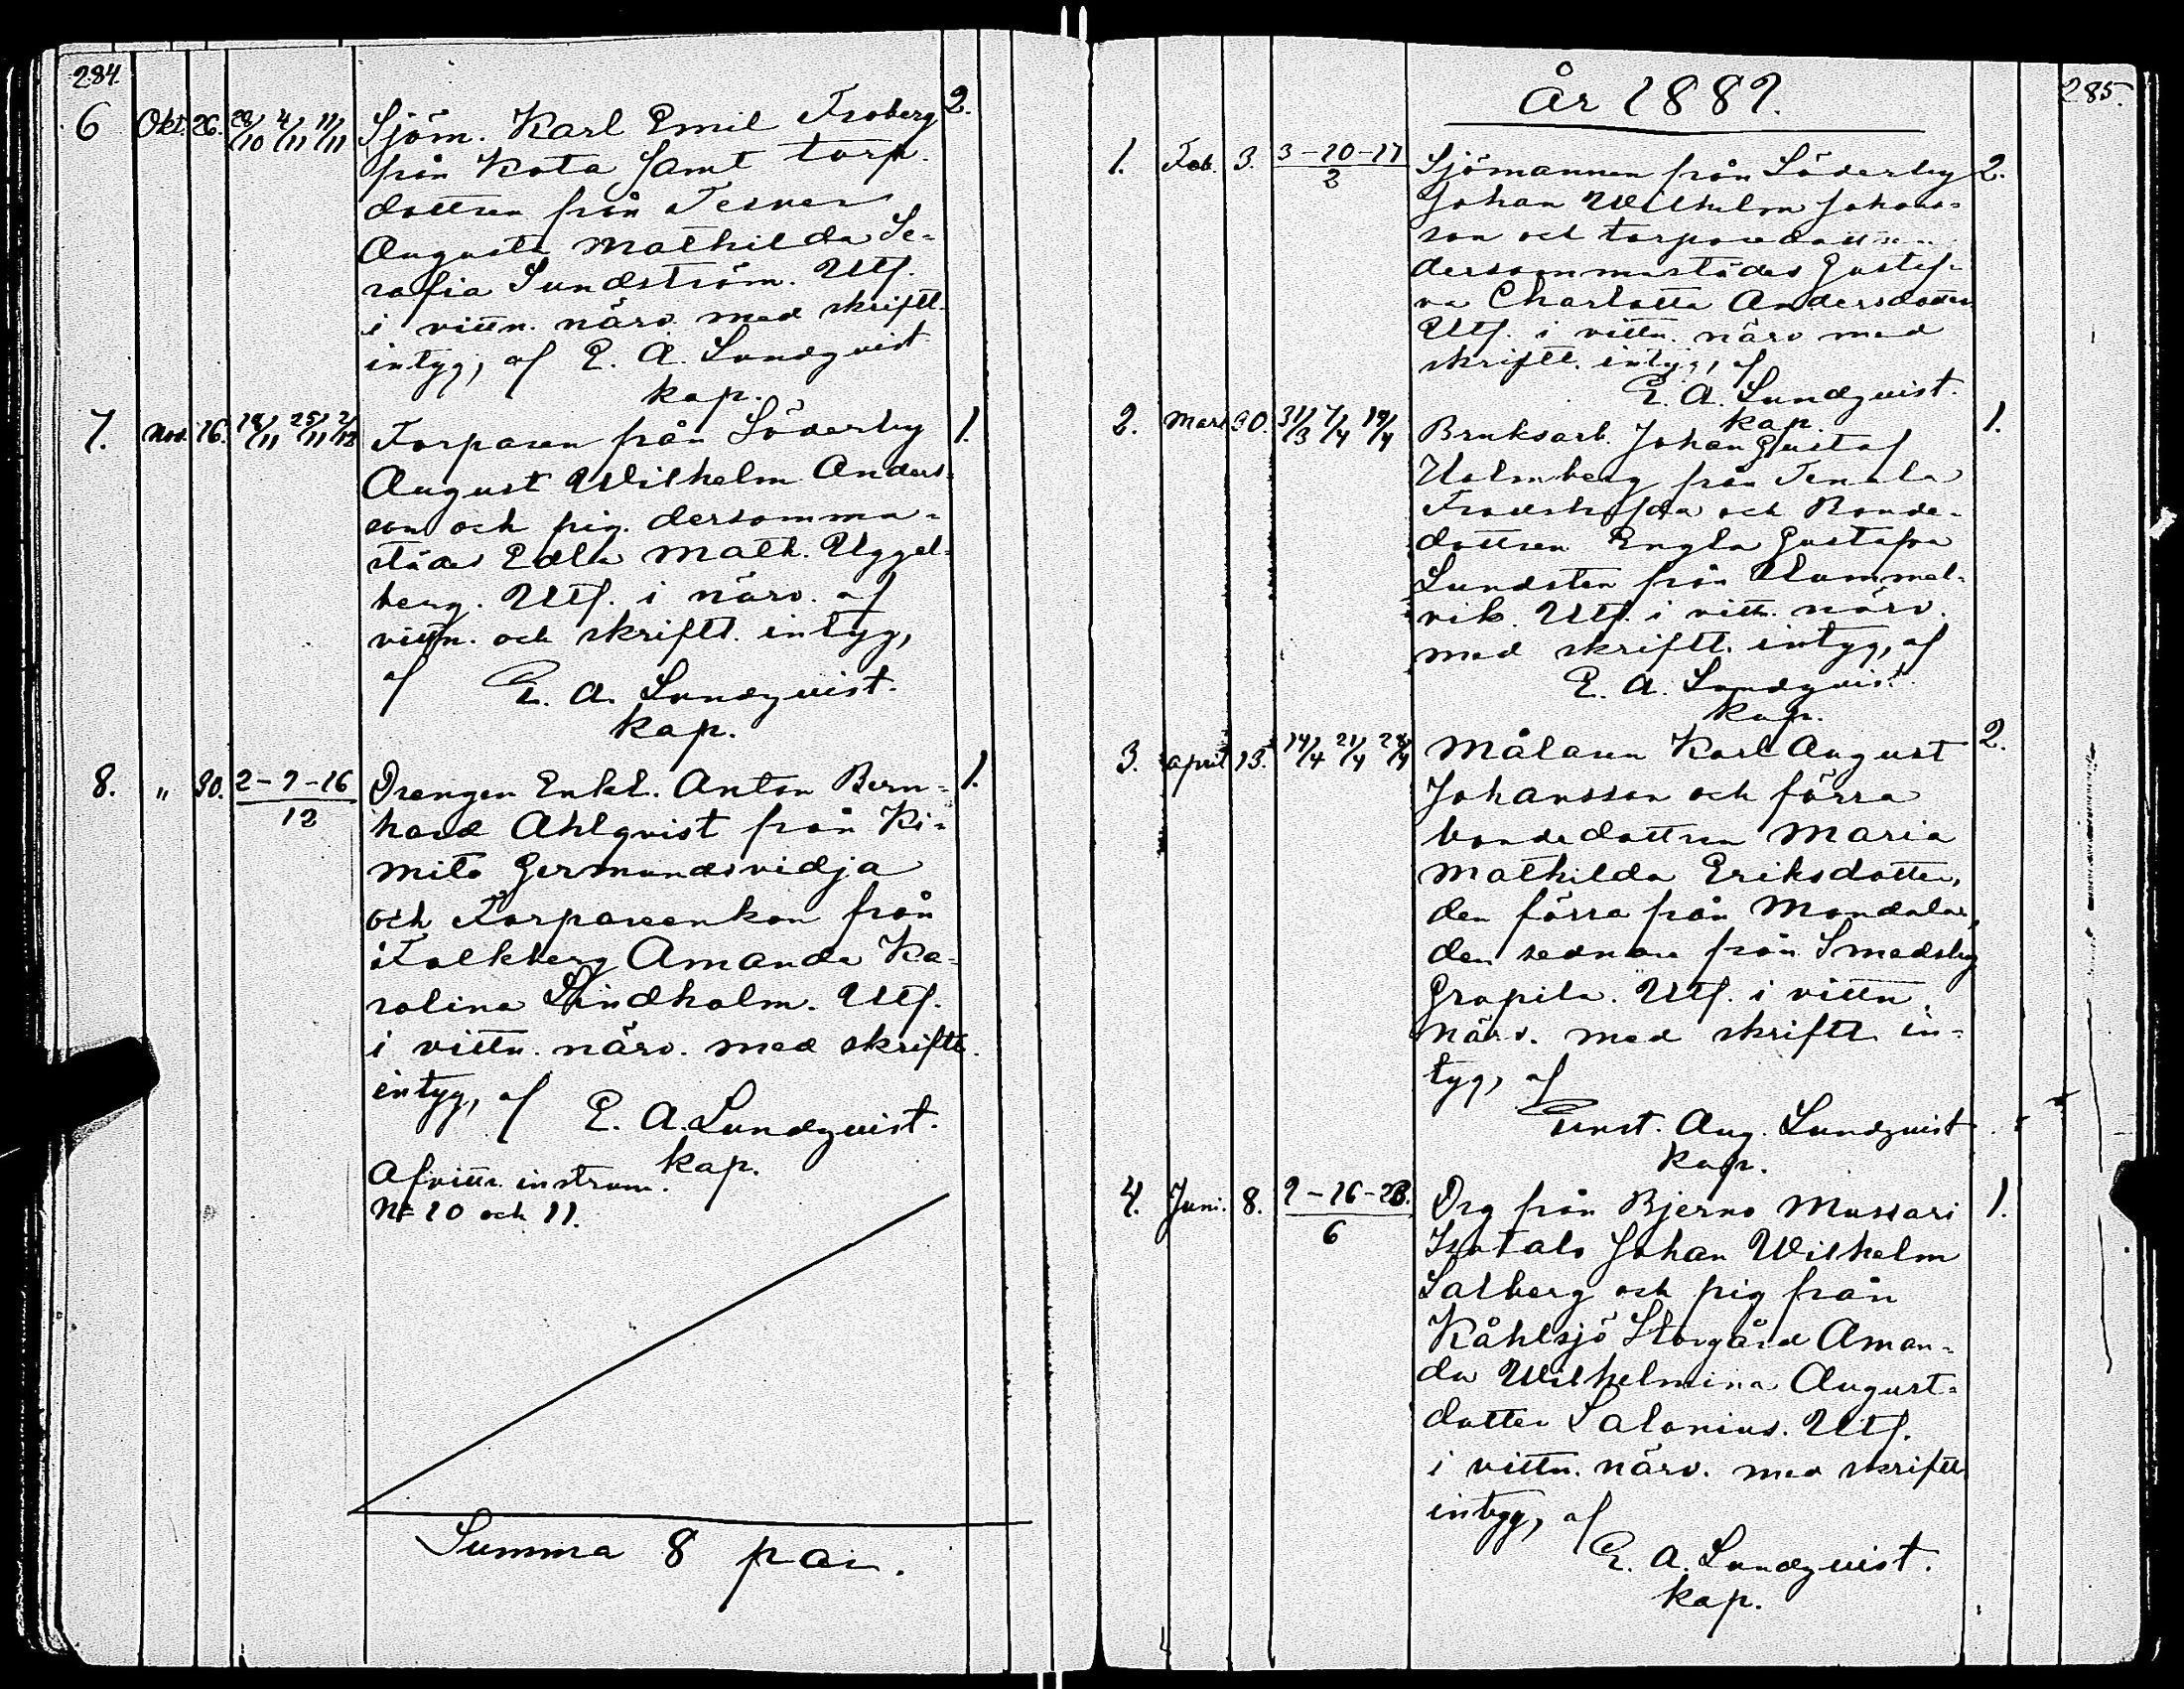 284.
6 Okt. 26. 28/10 4/11 11/11 Sjöm. Karl Emil Froberg 2.
från Kota samt torp.
dottren från Tesver
Augusta Mathilda Se-
rafia Sundström. Utf.
i vittn. närv. med skriftl.
intyg, af E. A. Lundqvist
kap.
7. Nov. 16. 18/11 25/11 2/12 Torparen från Söderby 1.
August Wilhelm Anders-
son och pig. dersamma-
städes Edla Math. Uggel-
berg. Utf. i närv. af
vittn. och skriftl. intyg,
af E. A. Lundqvist.
kap.
8. " 30. 2-9-16/12 Drengen Enkl. Anton Bern- 1.
hard Ahlqvist från Ki-
mito Germundsvidja
och Torpareenkan från
Falkberg Amanda Ka-
rolina Lindholm. Utf.
i vittn. närv. med skriftl.
intyg, af E. A. Lundqvist.
kap.
Afvittr. instrum.
N= 10 och 11.
Summa 8 par.
285.
År 1889.
1. Feb. 3. 3-10-17/2 Sjömannen från Söderby 2.
Johan Wilhelm Johans-
son och torparedottren
dersammastädes Gustaf-
va Charlotta Andersdotter
Utf. i vittn. närv med
skriftl. intyg, af
E. A. Lundqvist.
kap.
2. Mars 30. 31/3 7/4 14/4 Bruksarb. Johan Gustaf 1.
Holmberg från Tenala
och Bonde-
dottren Engla Gustafva
Lundsten från Hummel-
vik. Utf. i vittn. närv.
med skriftl. intyg, af
E. A. Lundqvist.
kap.
3. April 13. 14/4 21/4 28/4 Målaren Karl August 2.
Johansson och förra
bondedottren Maria
Mathilda Eriksdotter,
den förra från
den sednare från Smedsby
Gropila. Utf. i vittn.
närv. med skriftl. in-
tyg, af
Ernst. Aug. Lundqvist
kap.
4. Juni. 8. 9-16-23./6 Drg från Bjerno Mussari 1.
Isotalo Johan Wilhelm
Salberg och pig från
Kåhlsjö Storgård Aman-
da Wilhelmina August-
dotter Salonius. Utf.
i vittn. närv. med skriftl
intyg, af
E. A. Lundqvist.
kap.